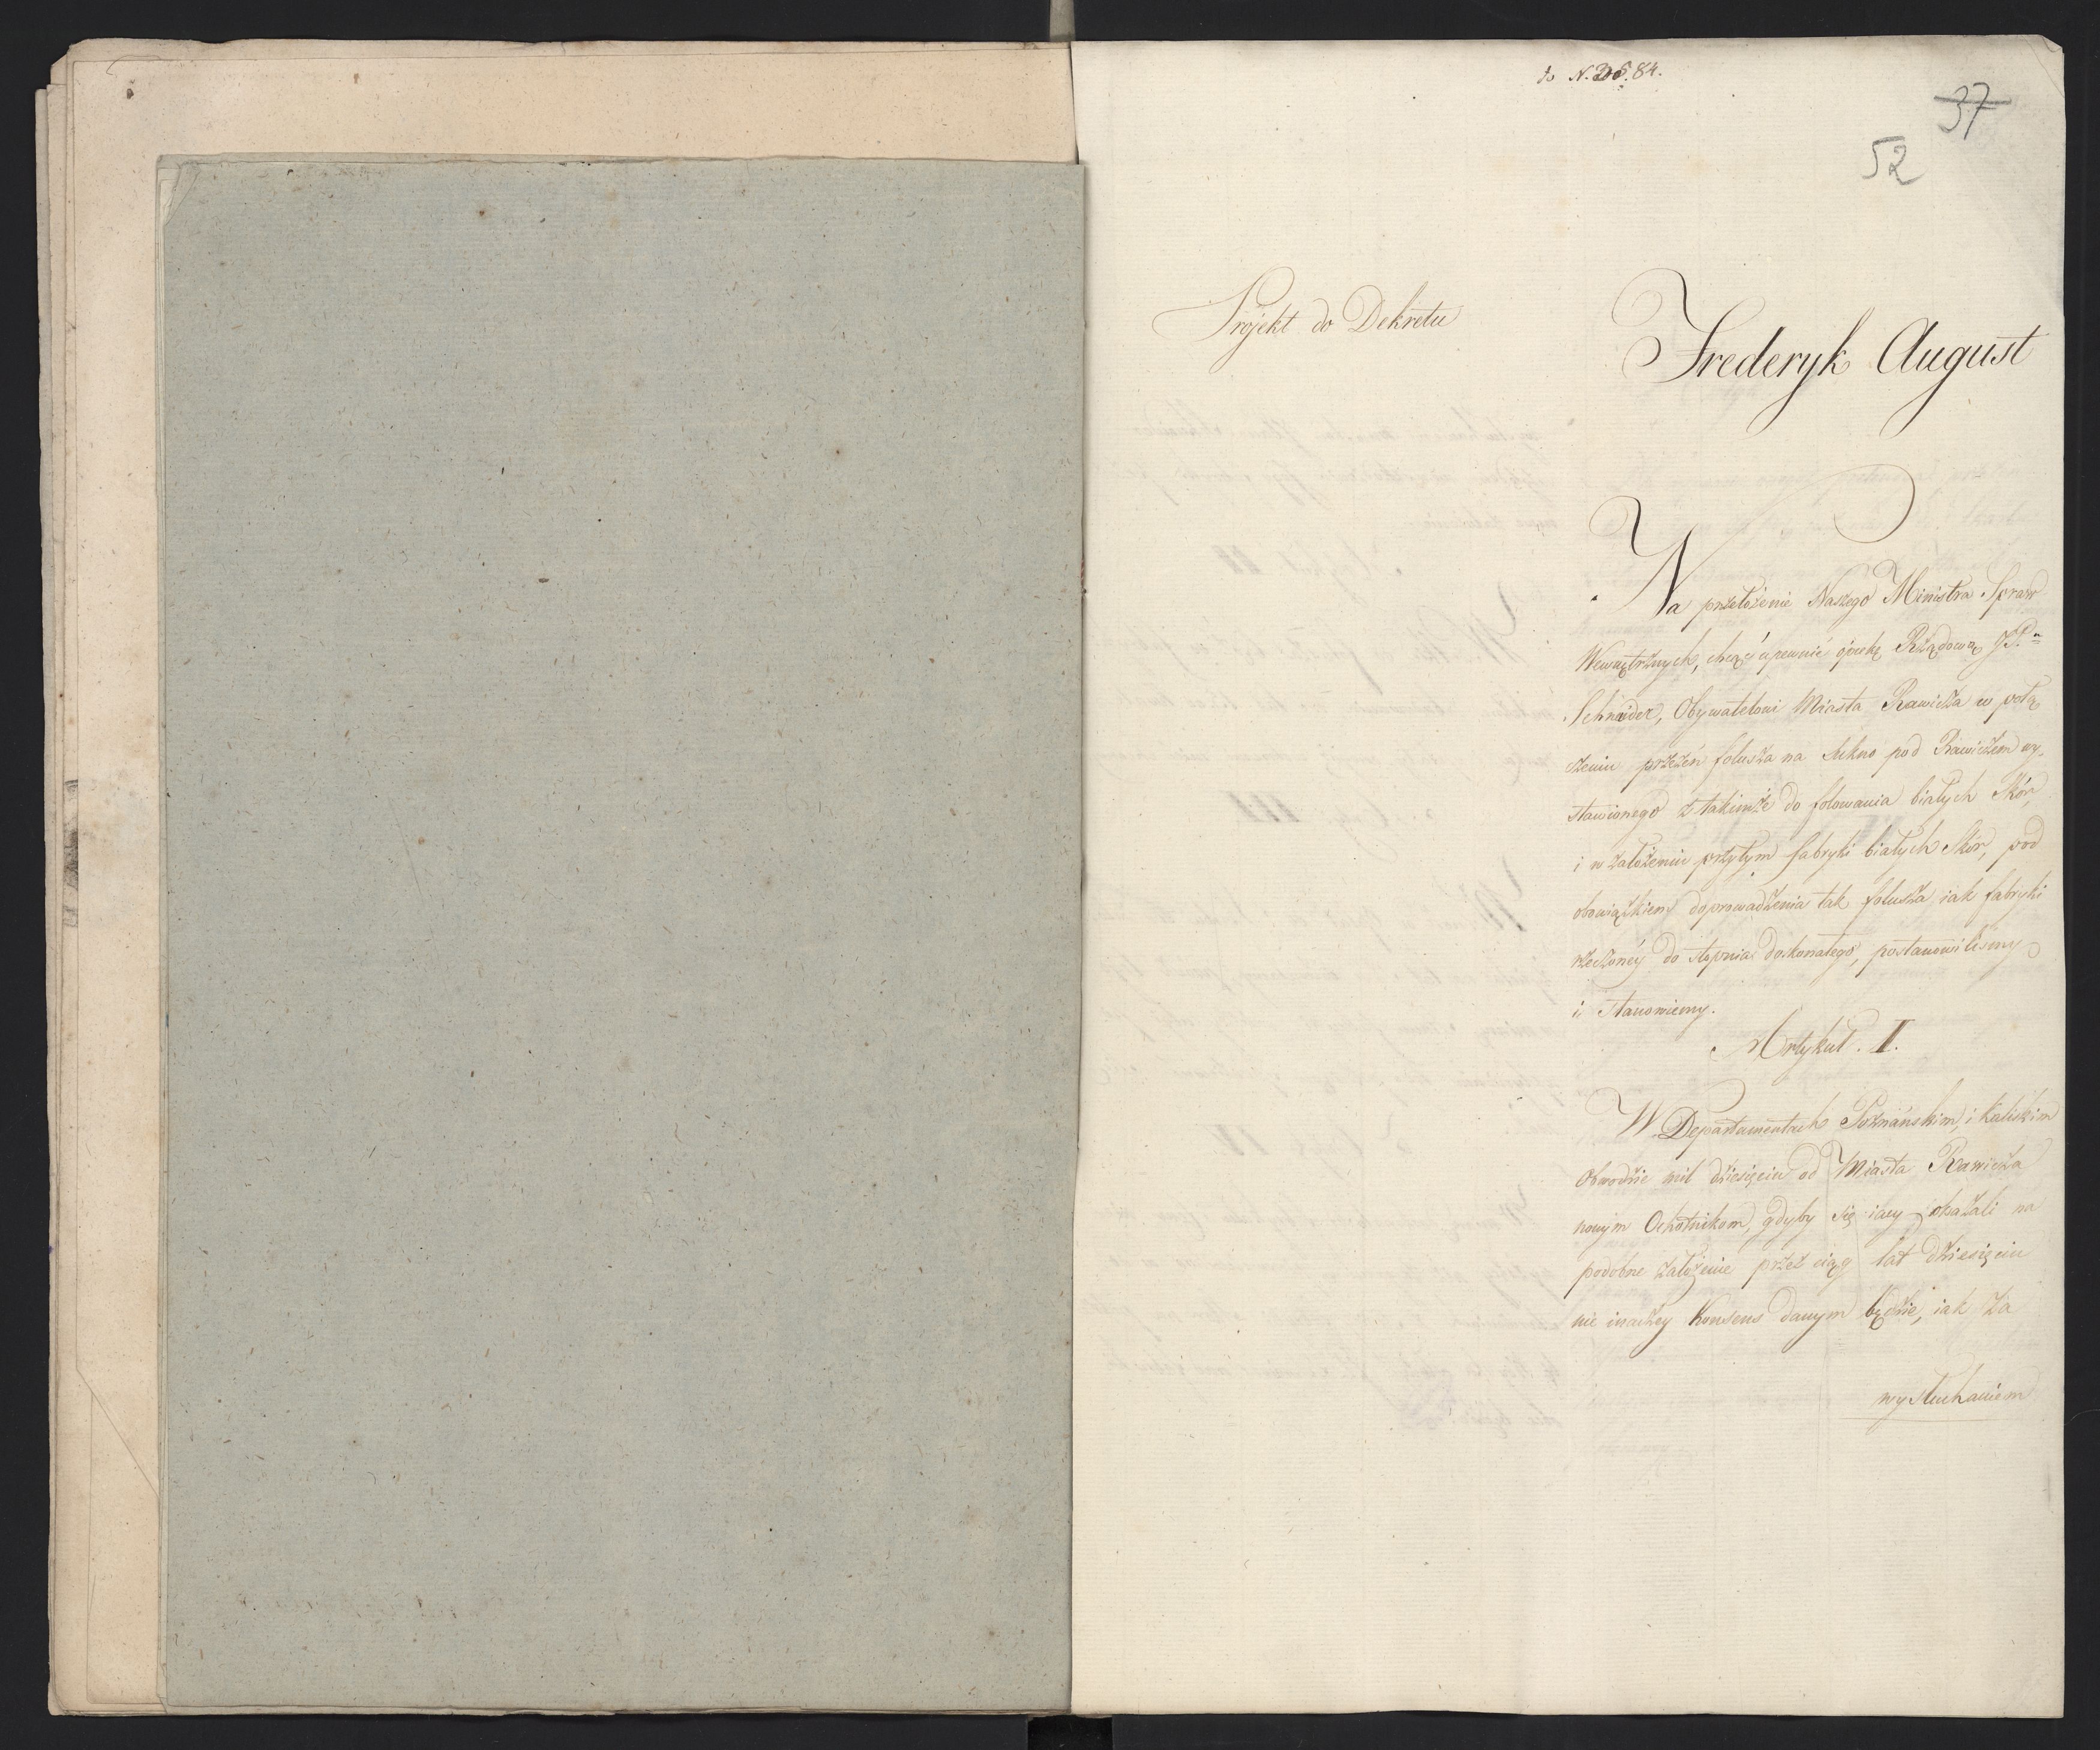 do N. 84.
37
52
Projekt do Dekretu
Frederyk August
Na przełożenie Naszego Ministra Spraw
Wewnętrznych, chcąc upewnić opiekę Rządową
Schneider, Obywatelowi Miasta Rawicza w połą
czeniu przezeń folusza na sukno pod Rawiczem wy-
stawionego z takimże do folowania białych Skór,
i w założeniu przytym fabryki białych Skór, pod
obowiązkiem doprowadzenia tak folusza iak fabryki
rzeczoney do stopnia doskonałego, postanowiliśmy
i stanowiemy.
Artykuł. I.
W Departamentach Poznańskim, i Kaliskim
obwodzie mil dziesięciu od Miasta Rawicza
nowym Ochotnikom, gdyby się iacy okazali na
podobne założenie przez ciąg lat dziesięciu
nie inaczey Konsens danym będzie, iak za
wysłuchaniem